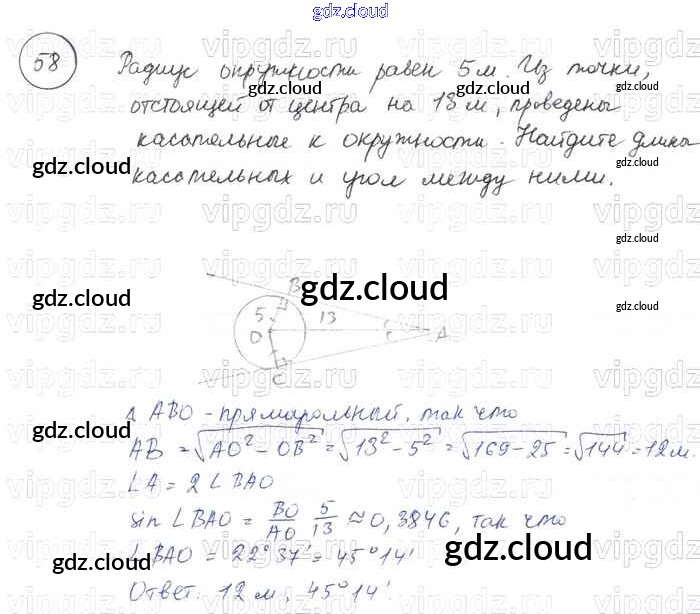 gdz.cloud
58
Радиус окружности равен 5 м. Из точки,
отстоящей от центра на 13 м, проведены
касательные к окружности. Найдите длина
касательных и угол между ними.
gdz.cloud
gdz.cloud
gdz.cloud
gdz.cloud
B
gdz.cloud
gdz.cloud
gdz.cloud
5
13
O
A
C
Δ ABO - прямоугольный, так что
AB = √AO² - OB² = √13² - 5² = √169 - 25 = √144 = 12 м.
gdz.cloud
gdz.cloud
∠A = 2 ∠BAO
sin ∠BAO = BO/AO 5/13 ≈ 0,3846, так что
∠BAO = 22°37' = 45°14'
gdz.cloud
gdz.cloud
Ответ: 12 м, 45°14'
vipgdz.ru